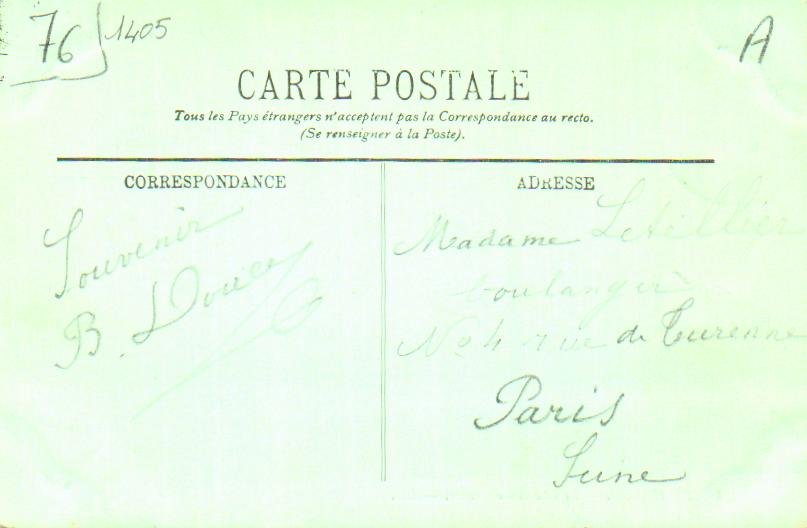 76 1405
A
CARTE POSTALE
Tous les Pays étrangers n'acceptent pas la Correspondance au recto.
(Se renseigner à la Poste).
CORRESPONDANCE
Souvenir
B.
ADRESSE
Madame Letellier
boulangerie
No 4 rue de Turenne
Paris
Seine